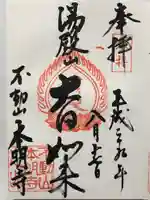 奉拝
平成二十九年
八月十一日
湯殿山
大日如来
不動山本明寺